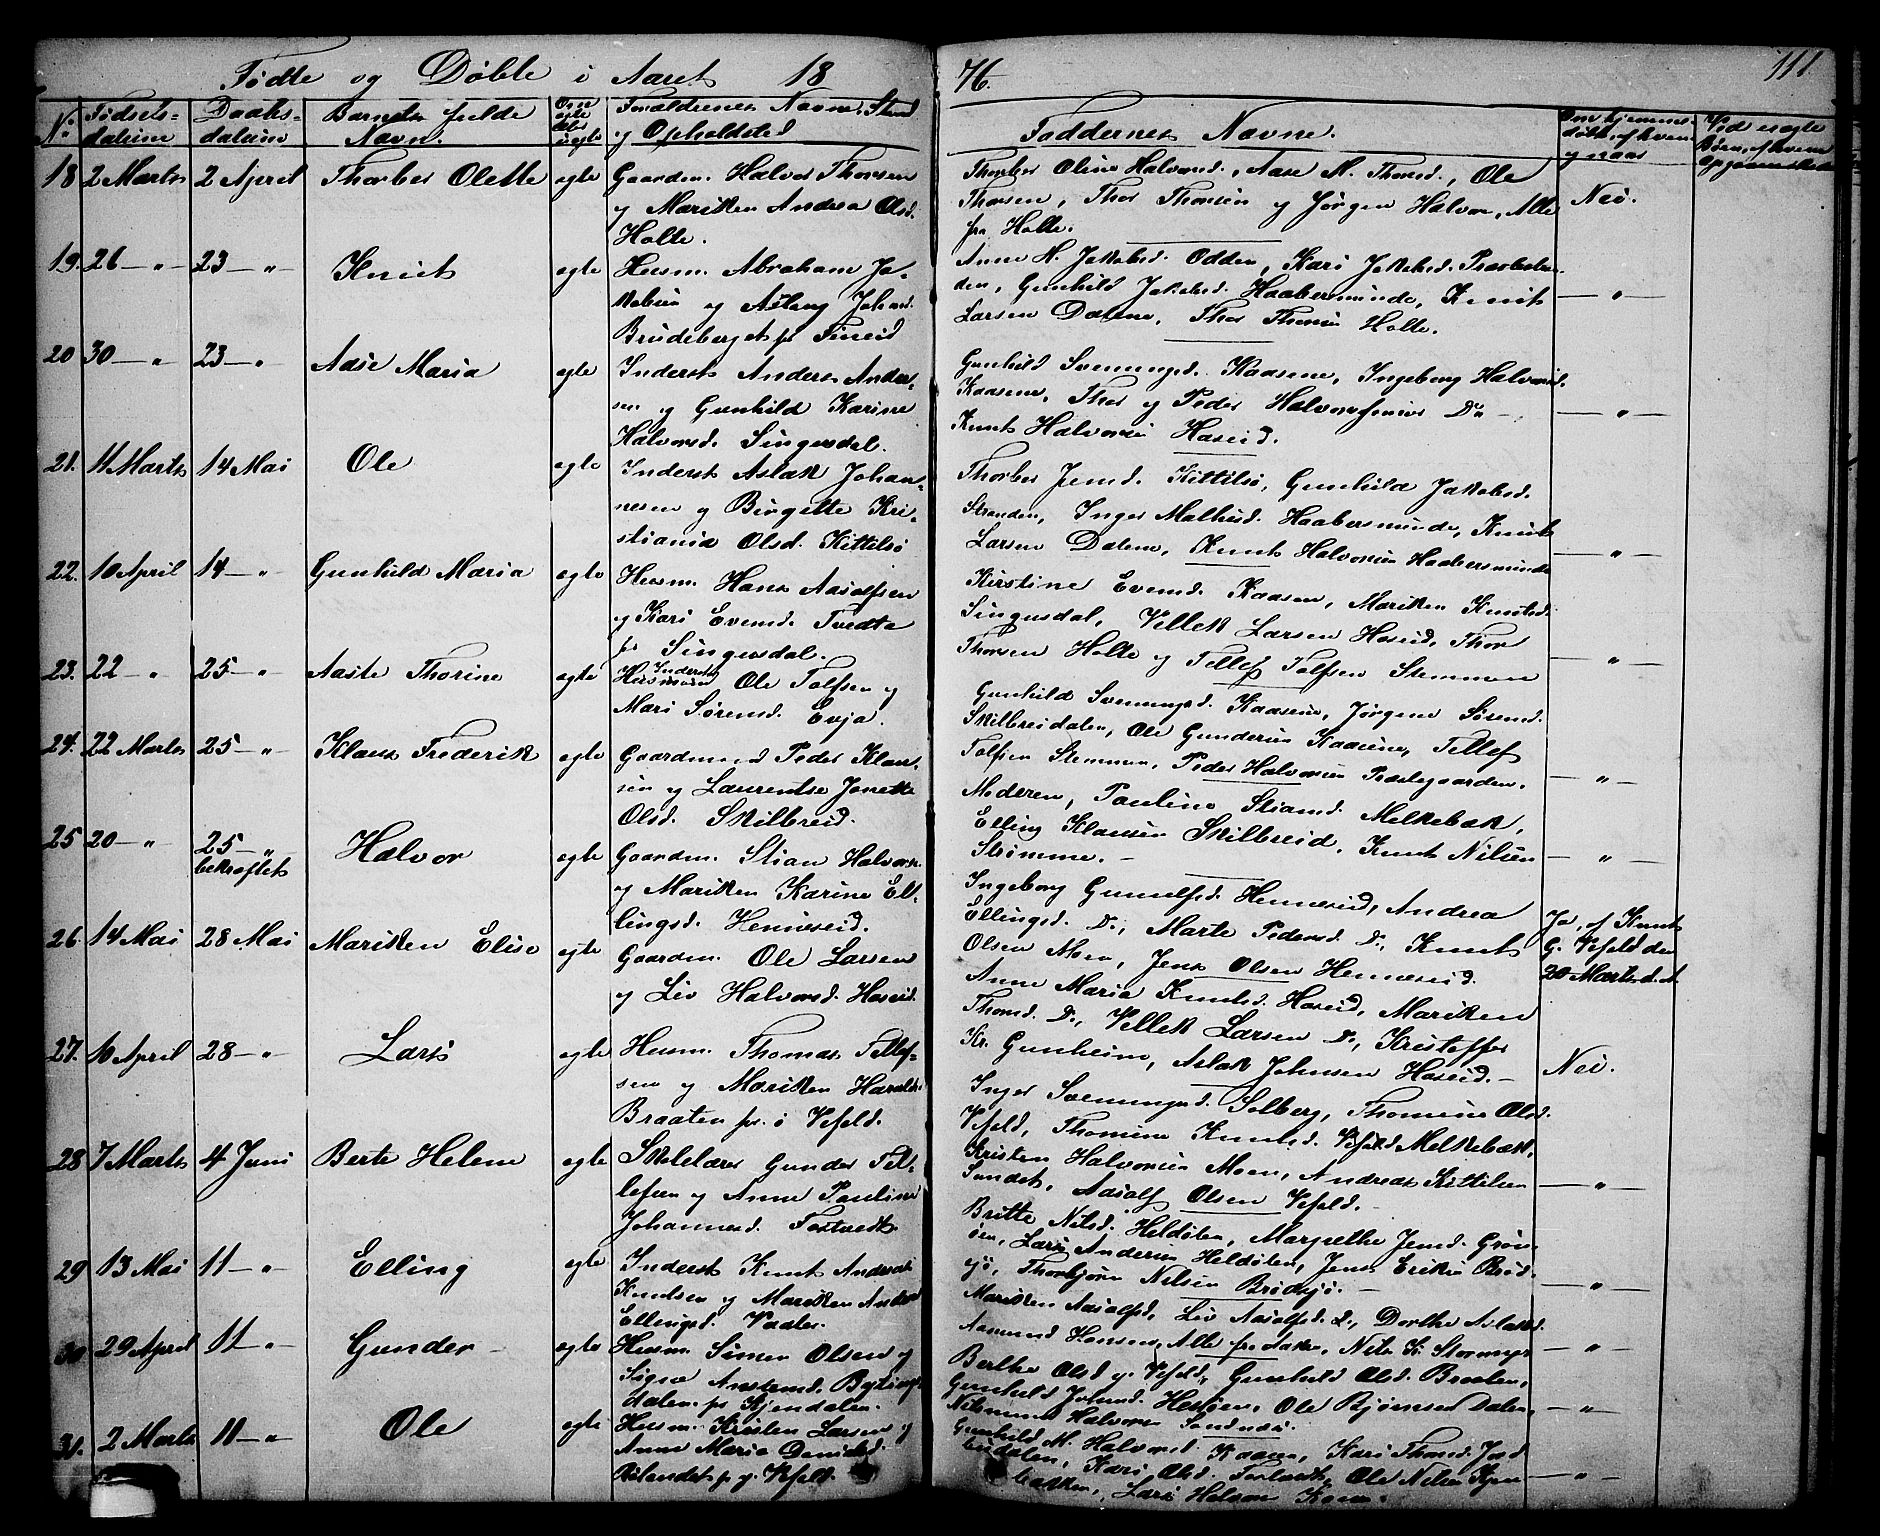 Fødte og Døbte i Aaret 18
76.
111
No
Fødsels-
datum
Daabs-
datum
Barnets fulde
Navn.
Om
egte
eller
uegte
Forældrenes Navne, Stand
og Opholdsted
Faddernes Navne.
Om hjemme-
døbt, af hvem
og naar
Ved uegte
Børn, af hvem
18 2 Marts 2 April Thorber Olette egte Gaardm. Halvor Thorsen
og Mariken Andrea Olsd.
Holte.
Thorber Oline Halvorsd., Aase M. Thorsd., Ole
Thorsen, Thor Thorsen og Jørgen Halvor., Alle
fra Holte.
Nei.
19. 26 — " — 23 — " Knut egte Husm. Abraham Ja-
kobsen og Aslaug Johansd.
Brudeberget pr Fineid
Anne H. Jakobsd. Odden, Kari Jakobsd.
den, Gunhild Jakobsd. Haabersmunde, Knut
Larsen Dalene, Thor Thorsen Holte.
— " —
20 30 — " 23 — " Aase Maria egte Inderst Anders Ander-
sen og Gunhild Karine
Halvorsd. Singusdal.
Gunhild Svenungsd. Kaasene, Ingeborg Halvorsd.
Kaasene, Thor og Peder Halvorsenner Do —
Knut Halvorsen Haseid.
— " —
21. 11 Marts 14 Mai Ole egte Inderst Aslak Johan-
nesen og Birgitte Kri-
stiania Olsd. Kittilsø
Thorber Jensd. Kittilsø, Gunhild Jakobsd.
Stranden, Inger Mathisd. Haabersmunde, Knut
Larsen Dalene, Knut Halvorsen Haabersmunde
— " —
22. 10 April 14 — " Gunhild Maria egte Husm. Hans Aasolfsen
og Kari Evensd. Tvedte
pr Singusdal.
Kirstine Evensd. Kaasen, Mariken Knutsd.
Singusdal, Vellek Larsen Haseid, Thor
Thorsen Holte og Tellef Tolfsen Stemmen
— " —
23. 22 — " 25 — " Aaste Thorine egte Inderst
Husmann Ole Tolfsen og
Mari Sørensd. Evja.
Gunhild Svenungsd. Kaasene, Jørgine Sørensd.
Skilbreidalen, Ole Gundersen Kaasene, Tellef
Tolfsen Stemmen, Peder Halvorsen Prestegaarden.
— " —
24. 22 Marts 25 — " Klaus Frederik egte Gaardmand Peder Klau-
sen og Laurentse Janette
Olsd. Skilbreid.
Moderen, Pauline Stiansd. Melkebæk,
Elling Klausen Skilbreid, Knut Nilsen
Strømme. —
— " —
25 20 — " 25 — "
bekræftet Halvor egte Gaardm. Stian Halvors.
og Mariken Karine El-
lingsd. Henneseid.
Ingeborg Gunnulfsd. Henneseid, Andrea
Ellingsd. Do., Marte Pedersd. Do., Knut
Olsen Moen, Jens Olsen Henneseid.
Ja, af Knut
G. Vefald den
20 Marts d. A.
26 14 Mai 28 Mai Mariken Elise egte Gaardm. Ole Larsen
og Liv Halvorsd. Haseid.
Anne Maria Knutsd. Haseid, Mariken
Thorsd. Do., Vellek Larsen Do., Kristoffer
Kr. Gunheim, Aslak Johnsen Haseid. —
Nei.
27. 10 April 28 — " Lars egte Husm. Thomas Tellef-
sen og Mariken Haralds.
Braaten pr. i Vefald.
Inger Svenungsd. Solberg, Thomine Olsd.
Vefald, Thomine Knutsd. Melkebæk,
Kristen Halvorsen Moen, Andreas Kittilsen
Sundet, Aasolf Olsen Vefald.
— " —
28 7 Marts 4 Juni Berte Helene egte Skolelærer Gunder Tel-
lefsen og Anne Pauline
Johannesd. Fostvedt
Britte Nilsd. Heldølen, Margrethe Jensd. Grøn-
øen, Lars Andersen Heldølen, Jens Eriksen Brød-
sjø, Thorbjørn Nilsen Brødsjø. —
— " —
29 13 Mai 11 — " Elling egte Inderst Knut Andreas
Knutsen og Mariken Andrea
Ellingsd. Vaaler.
Mariken Aasolfsd., Liv Aasolfsd. Do., Dorthe Aslaksd.
Aasmund Hansen, Alle fra Aasen, Nils K. Stormyr
— " —
30 29 April 11 — " Gunder — egte Husm. Simen Olsen og
Signe
dalen pr Kjendalen.
Berthe Olsd. Vefald, Gunhild Olsd. Braaten,
Gunhild Johnsd. Heseien, Ole Bjørnsen Dalen,
Halvorsen Sandnæs.
— " —
31. 2 Marts 11 — " Ole egte Husm. Kristen Larsen og
Anne Maria Danielsd.
Rølandet pr Vefald.
Gunhild M. Halvorsd. Kaasen, Kari Thorsd.
dalen, Kari Olsd. Ole Nilsen
bakken, Lars Halvor
— " —